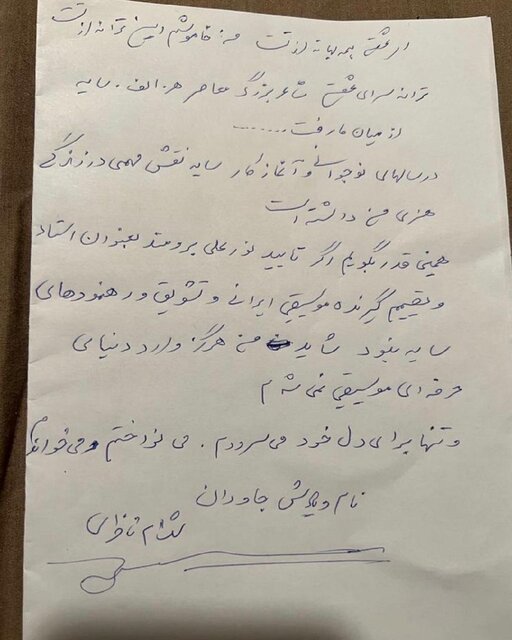 ار عشق همه بهانه از تست من خاموشم این ترانه از تست
ترانه سرای عشق شاعر بزرگ معاصر هـ. الف. سایه
از میان ما رفت........
در سالهای نوجوانی و آغاز کار سایه نقش مهمی در زندگی
هنری من داشته است
همین قدر بگویم اگر تایید نورعلی برومند بعنوان استاد
و تصمیم گیرنده موسیقی ایرانی و تشویق و رهنمودهای
سایه نبود شاید من هرگز وارد دنیای
حرفه ای موسیقی نمی شدم
و تنها برای دل خود می سرودم. می نواختم و می خواندم
نام و یادش جاودان
شهرام ناظری